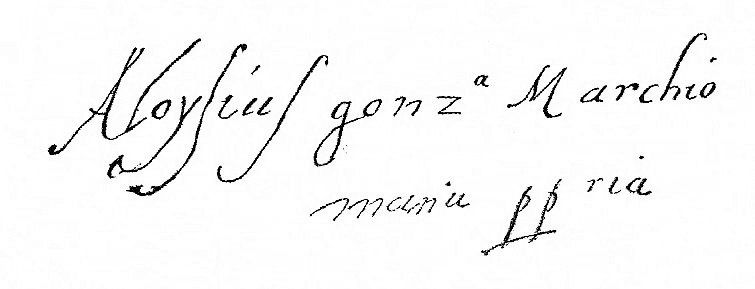 Aloysius gonzᵃ Marchio
manu ppria